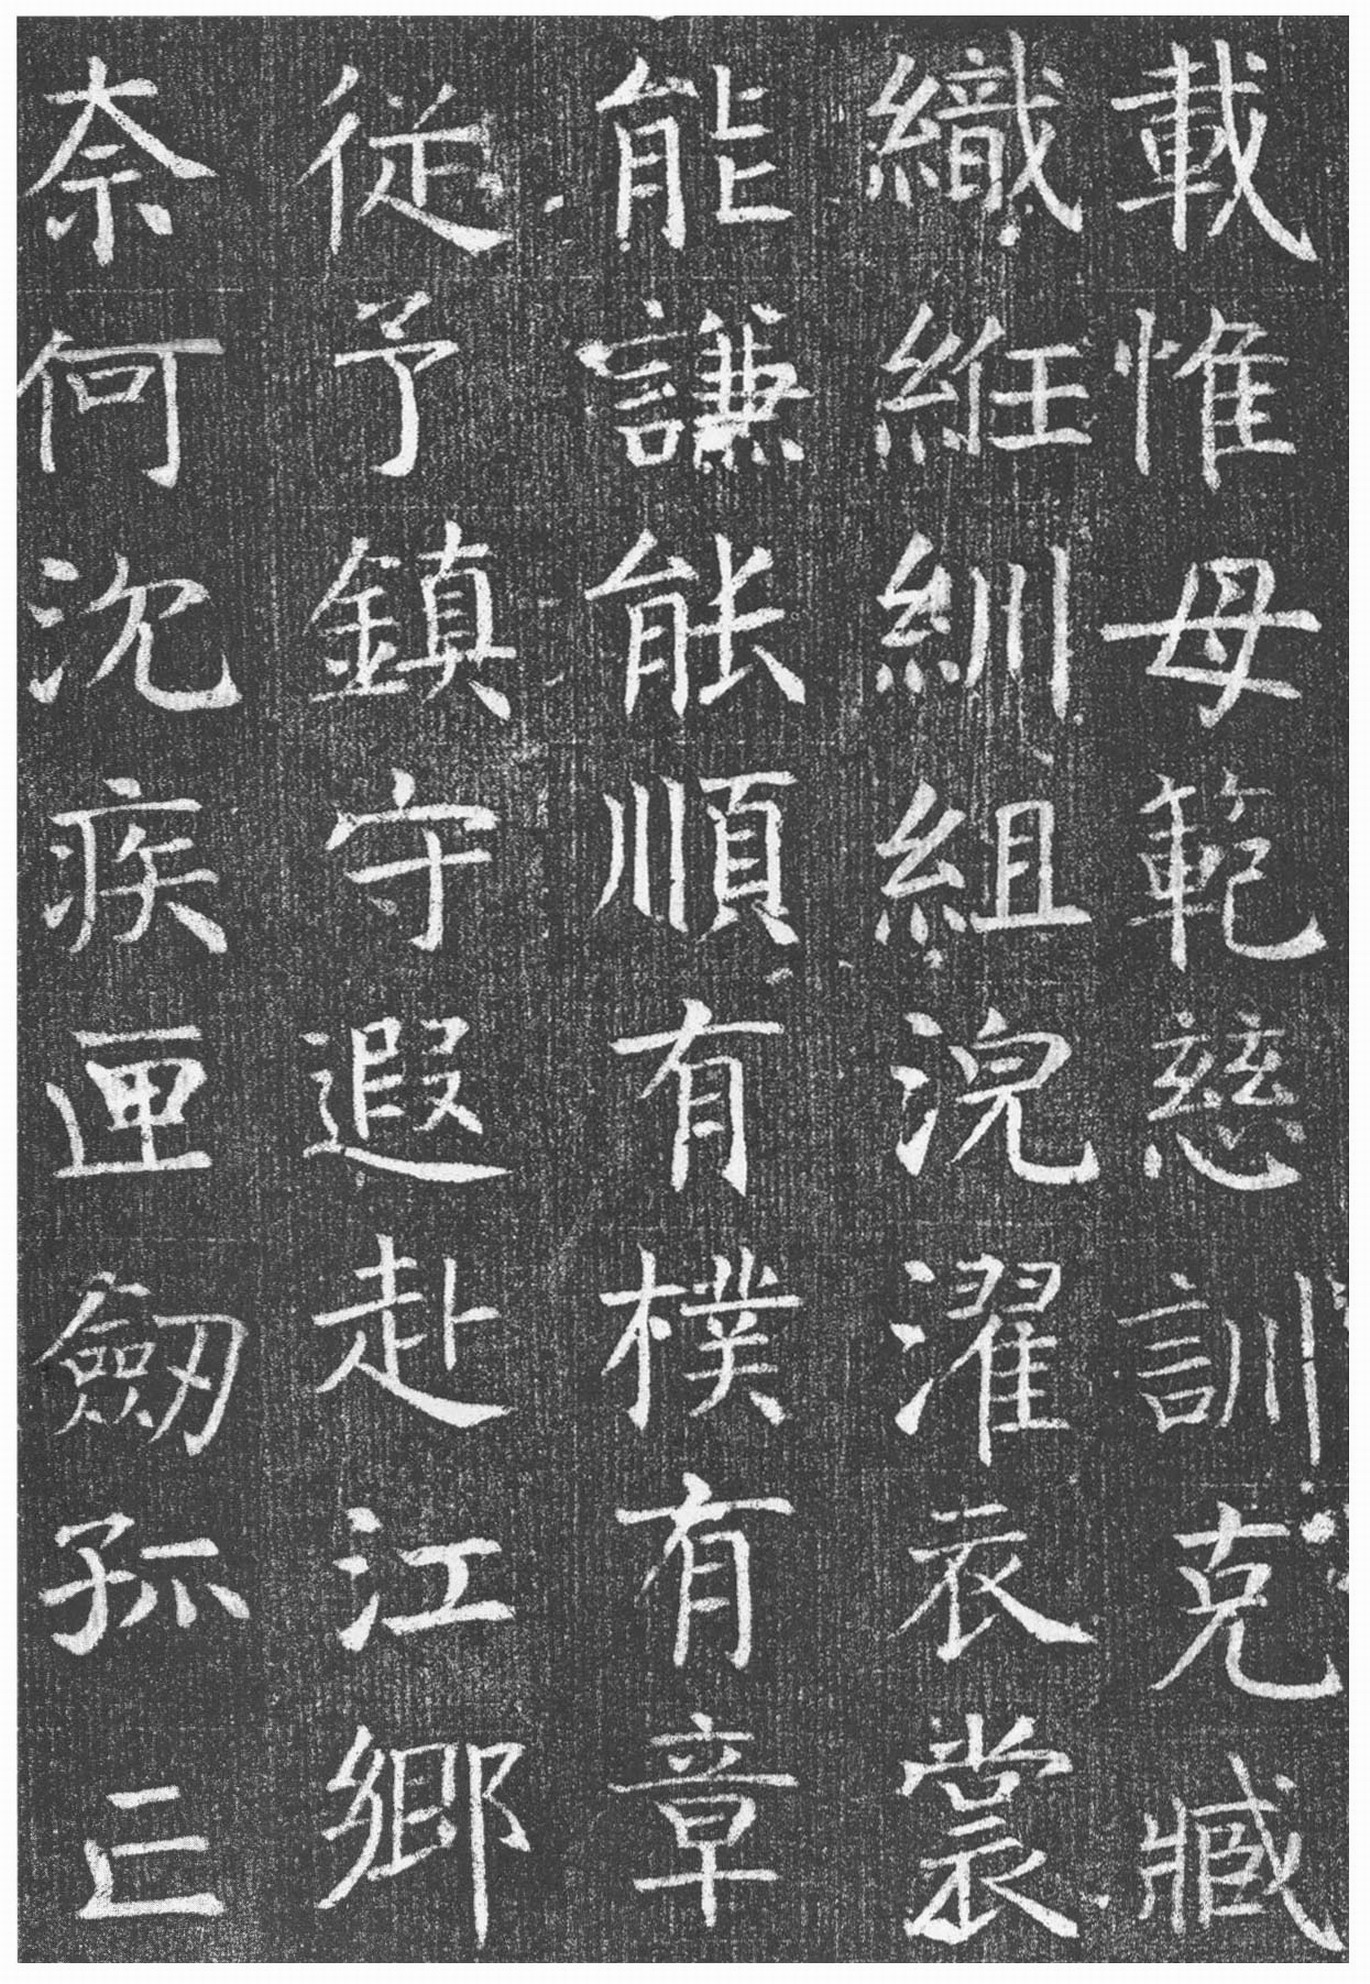 載惟母範慈訓克臧
織紝紃組浣濯衣裳
能謙能順有樸有章
從予鎮守遐赴江鄉
奈何沈疾匣劒孤亡